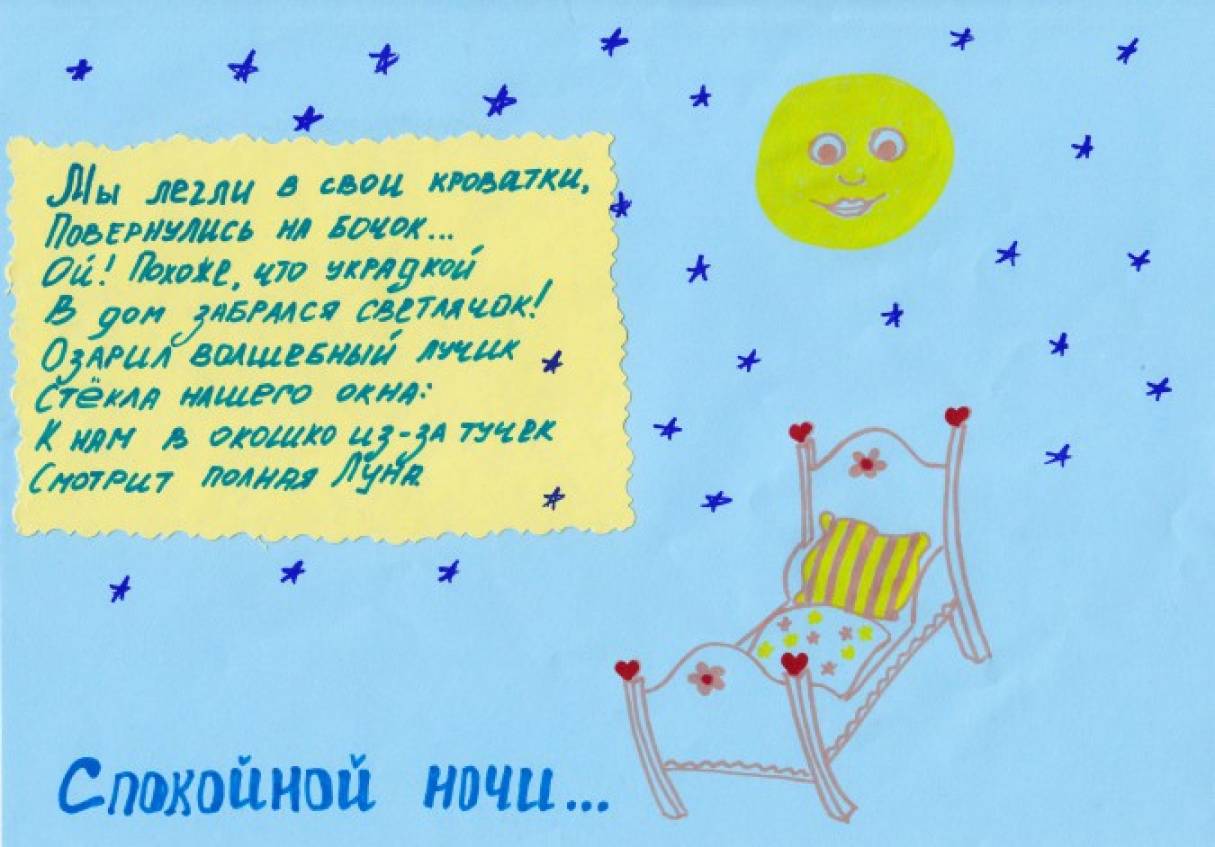 Мы легли в свои кроватки,
Повернулись на бочок...
Ой! Похоже, что украдкой
В дом забрался светлячок!
Озарил волшебный лучик
Стёкла нашего окна:
К нам в окошко из-за тучек
Смотрит полная Луна
Спокойной ночи...